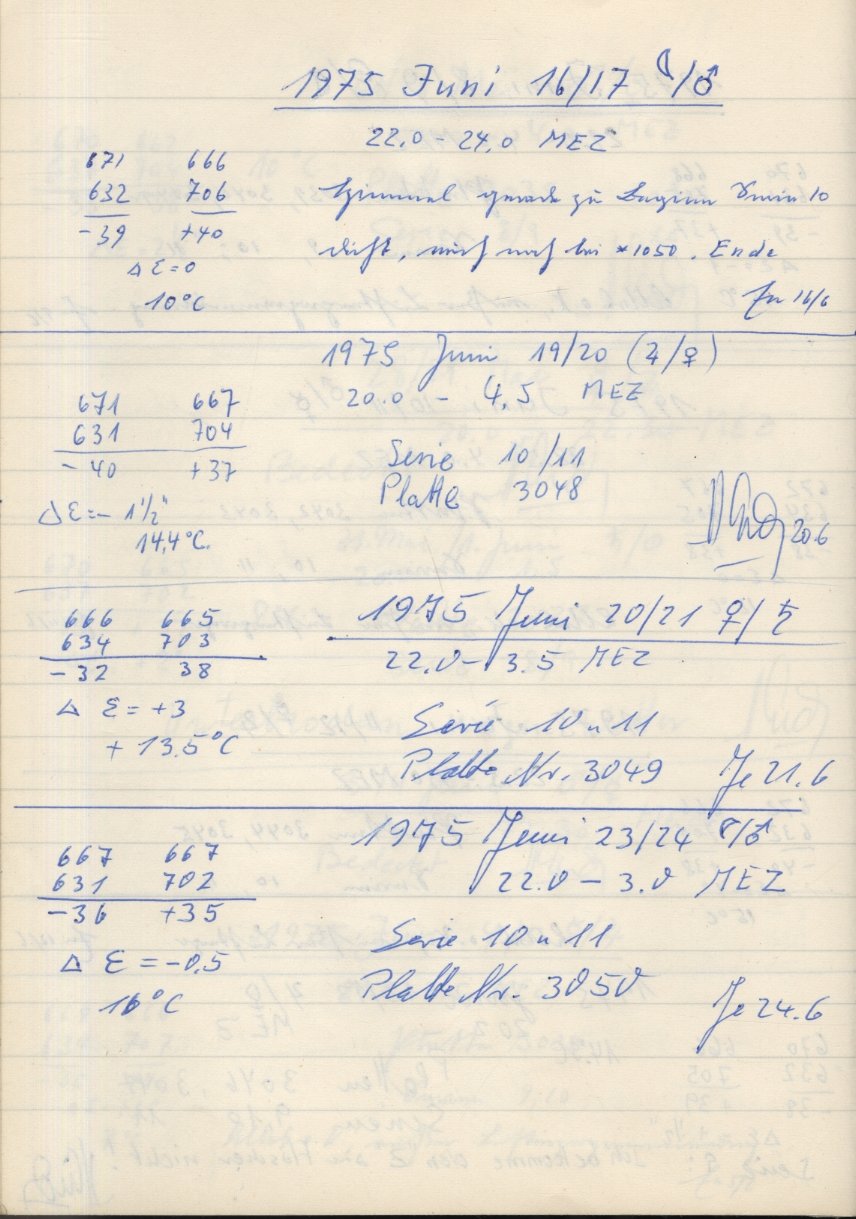 1975 Juni 16/17 ☾/♂
22.0 – 24.0 MEZ
671 666
632 706
-39 +40
Δ Ɛ = 0
10°C
Himmel gerade zu Beginn 10
dicht, auch noch bei *1050. Ende
16/6
1975 Juni 19/20 (♃/♀)
20.0 – 4.5 MEZ
671 667
631 704
-40 +37
Δ Ɛ = - 1½"
14,4°C.
Serie 10/11
Platte 3048
20.6
1975 Juni 20/21 ♀/♄
22.0 – 3.5 MEZ
666 665
634 703
-32 38
Δ Ɛ = +3
+ 13.5°C
Serie 10 u 11
Platte Nr. 3049 Je 21.6
1975 Juni 23/24 ☾/♂
22.0 – 3.0 MEZ
667 667
631 702
-36 +35
Δ Ɛ = -0,5
16°C
Serie 10 u 11
Platte Nr. 3050
Je 24.6